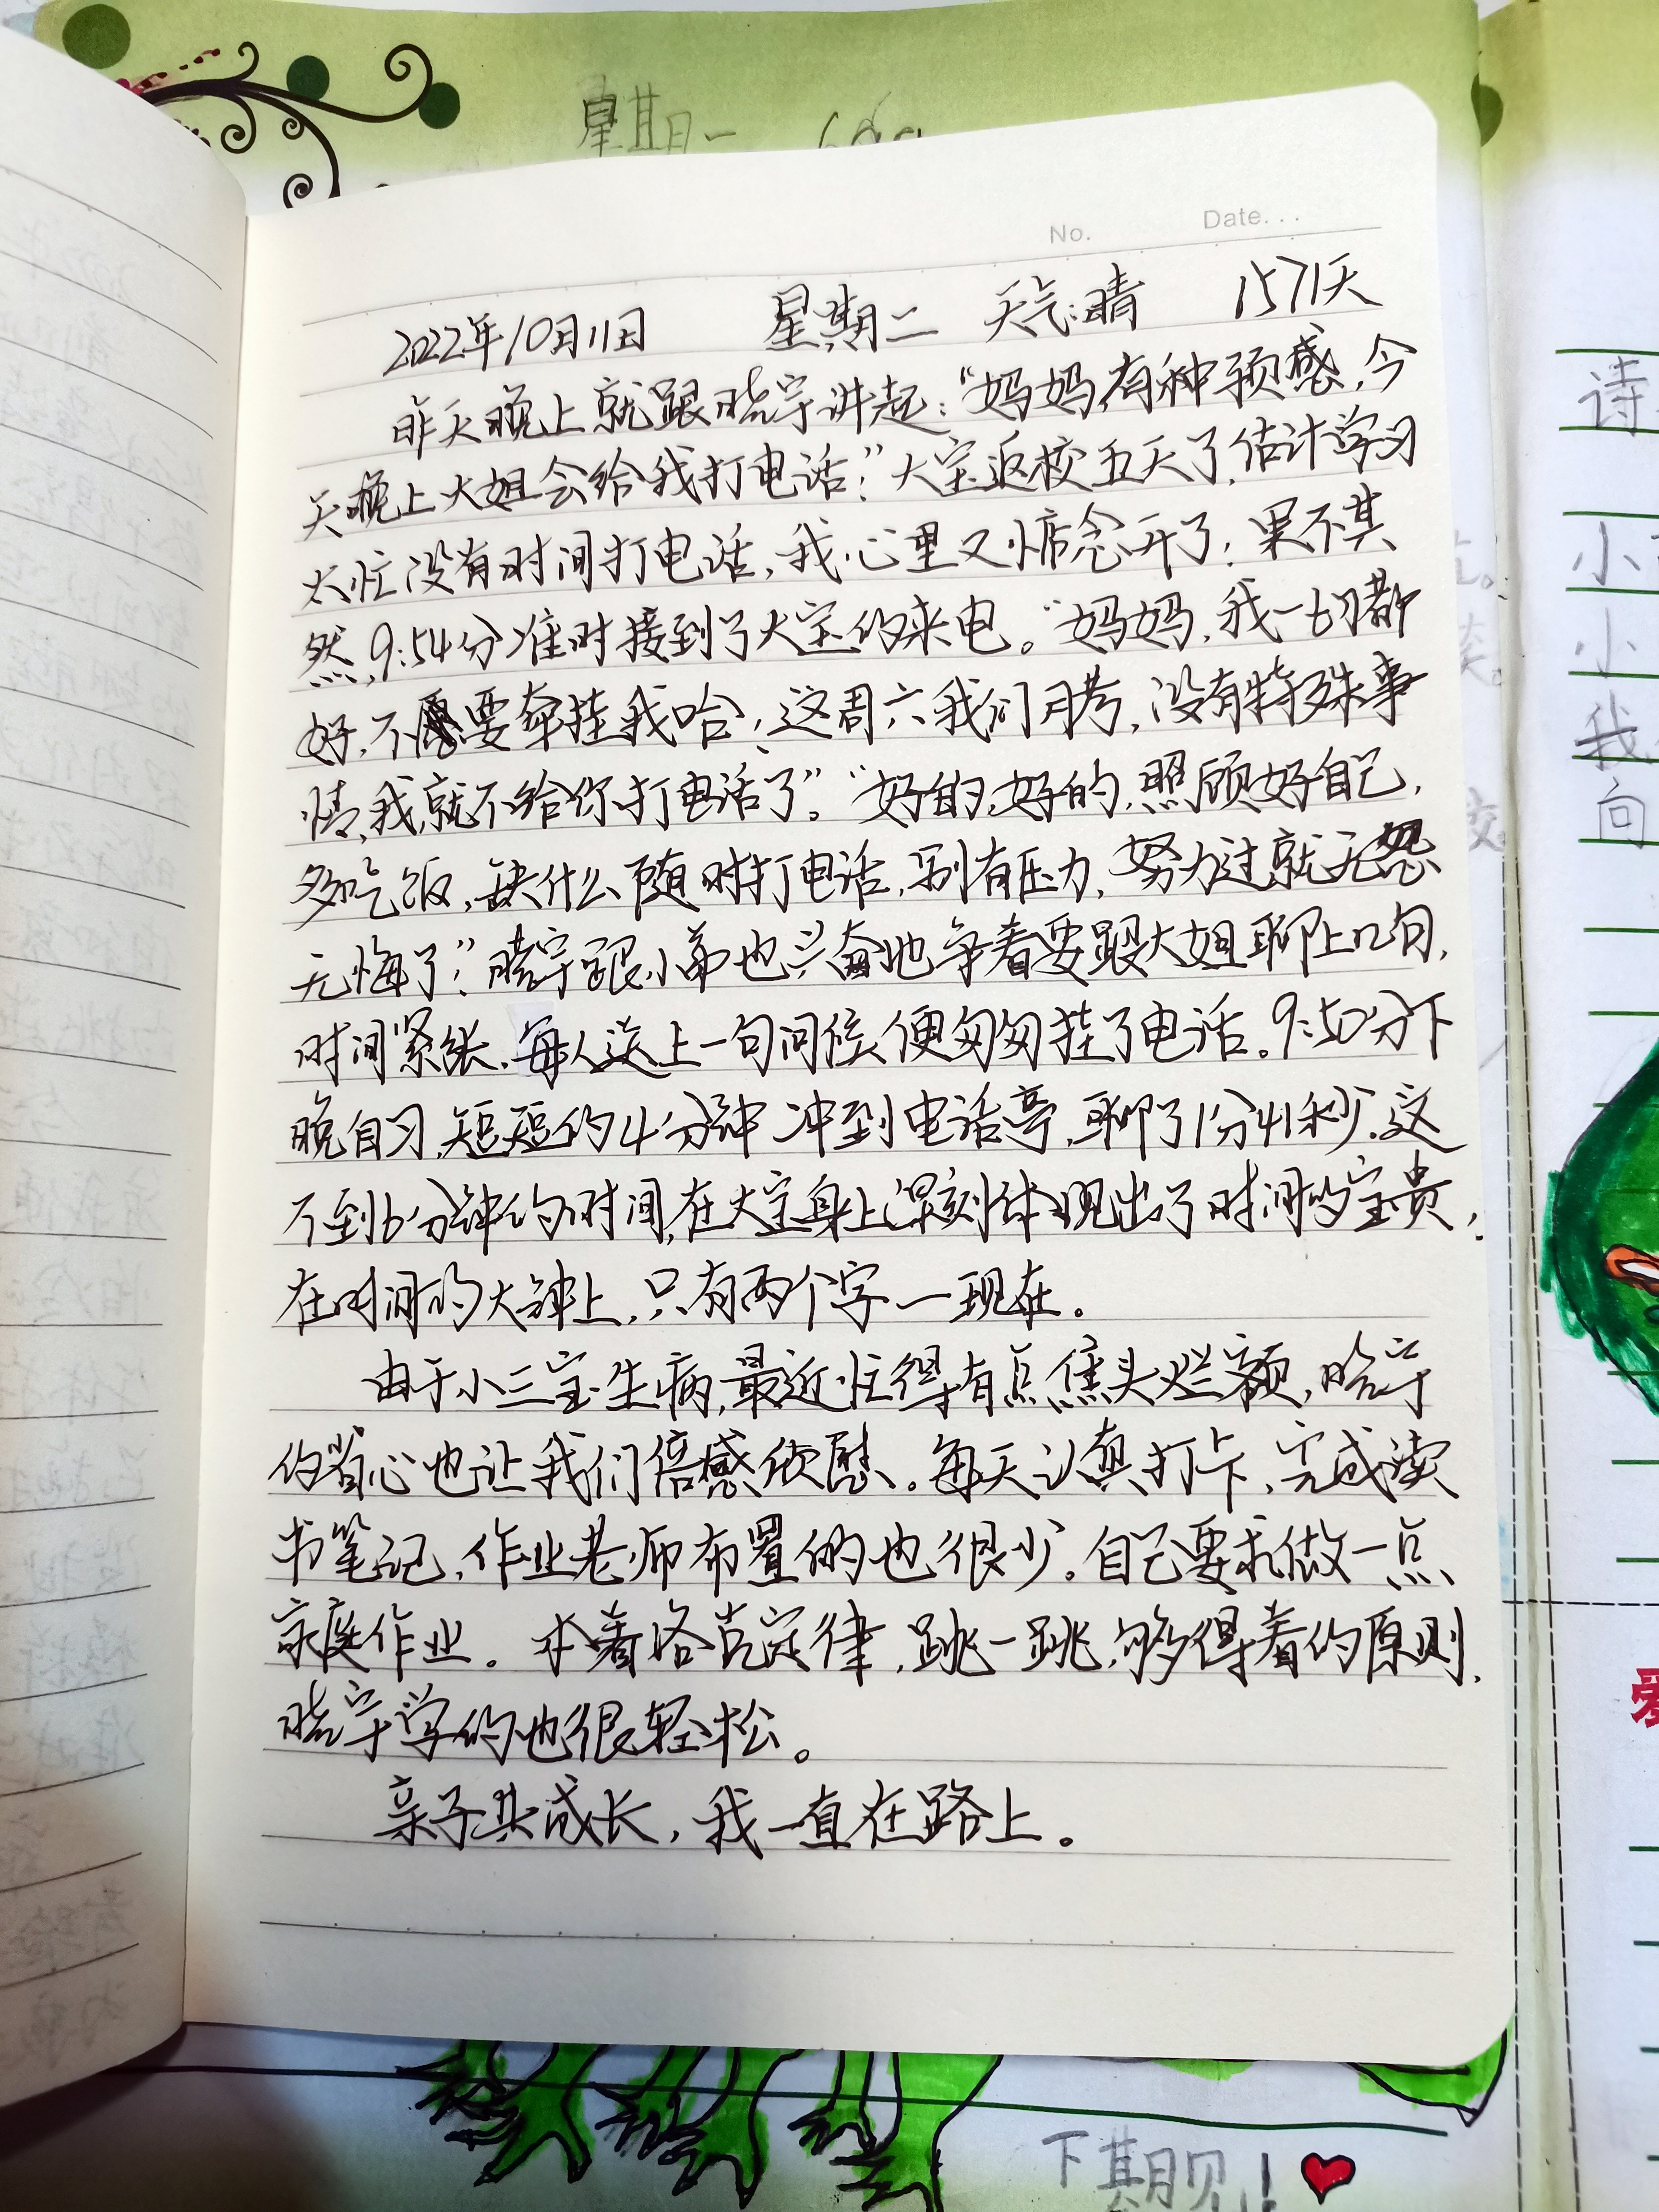 星期一
No. Date...
2022年10月11日 星期二 天气:晴 1571天
昨天晚上就跟晓宇讲起:“妈妈有种预感,今
天晚上大姐会给我打电话?”大宝返校五天了,估计学习
太忙没有时间打电话,我心里又惦念开了,果不其
然,9:54分准时接到了大宝的来电。“妈妈,我一切都
好,不要牵挂我哈,这周六我们月考,没有特殊事
情,我就不给你打电话了”。“好的,好的,照顾好自己,
多吃饭,缺什么随时打电话,别有压力,努力过就无怨
无悔了”,晓宇跟小弟也兴奋地争着要跟大姐聊上几句,
时间紧张,每人送上一句问候,便匆匆挂了电话。9:50分下
晚自习,短短的4分钟冲到电话亭,聊了1分41秒,这
不到6分钟的时间,在大宝身上深刻体现出了时间的宝贵,
在时间的大钟上,只有两个字—现在。
由于小三宝生病,最近忙得有点焦头烂额,晓宇
的省心也让我们倍感欣慰。每天认真打卡,完成读
书笔记,作业老师布置的也很少。自己要求做一点
家庭作业。本着洛克定律,跳一跳,够得着的原则,
晓宇学的也很轻松。
亲子共成长,我一直在路上。
诗
小
小
我
向
下期见!